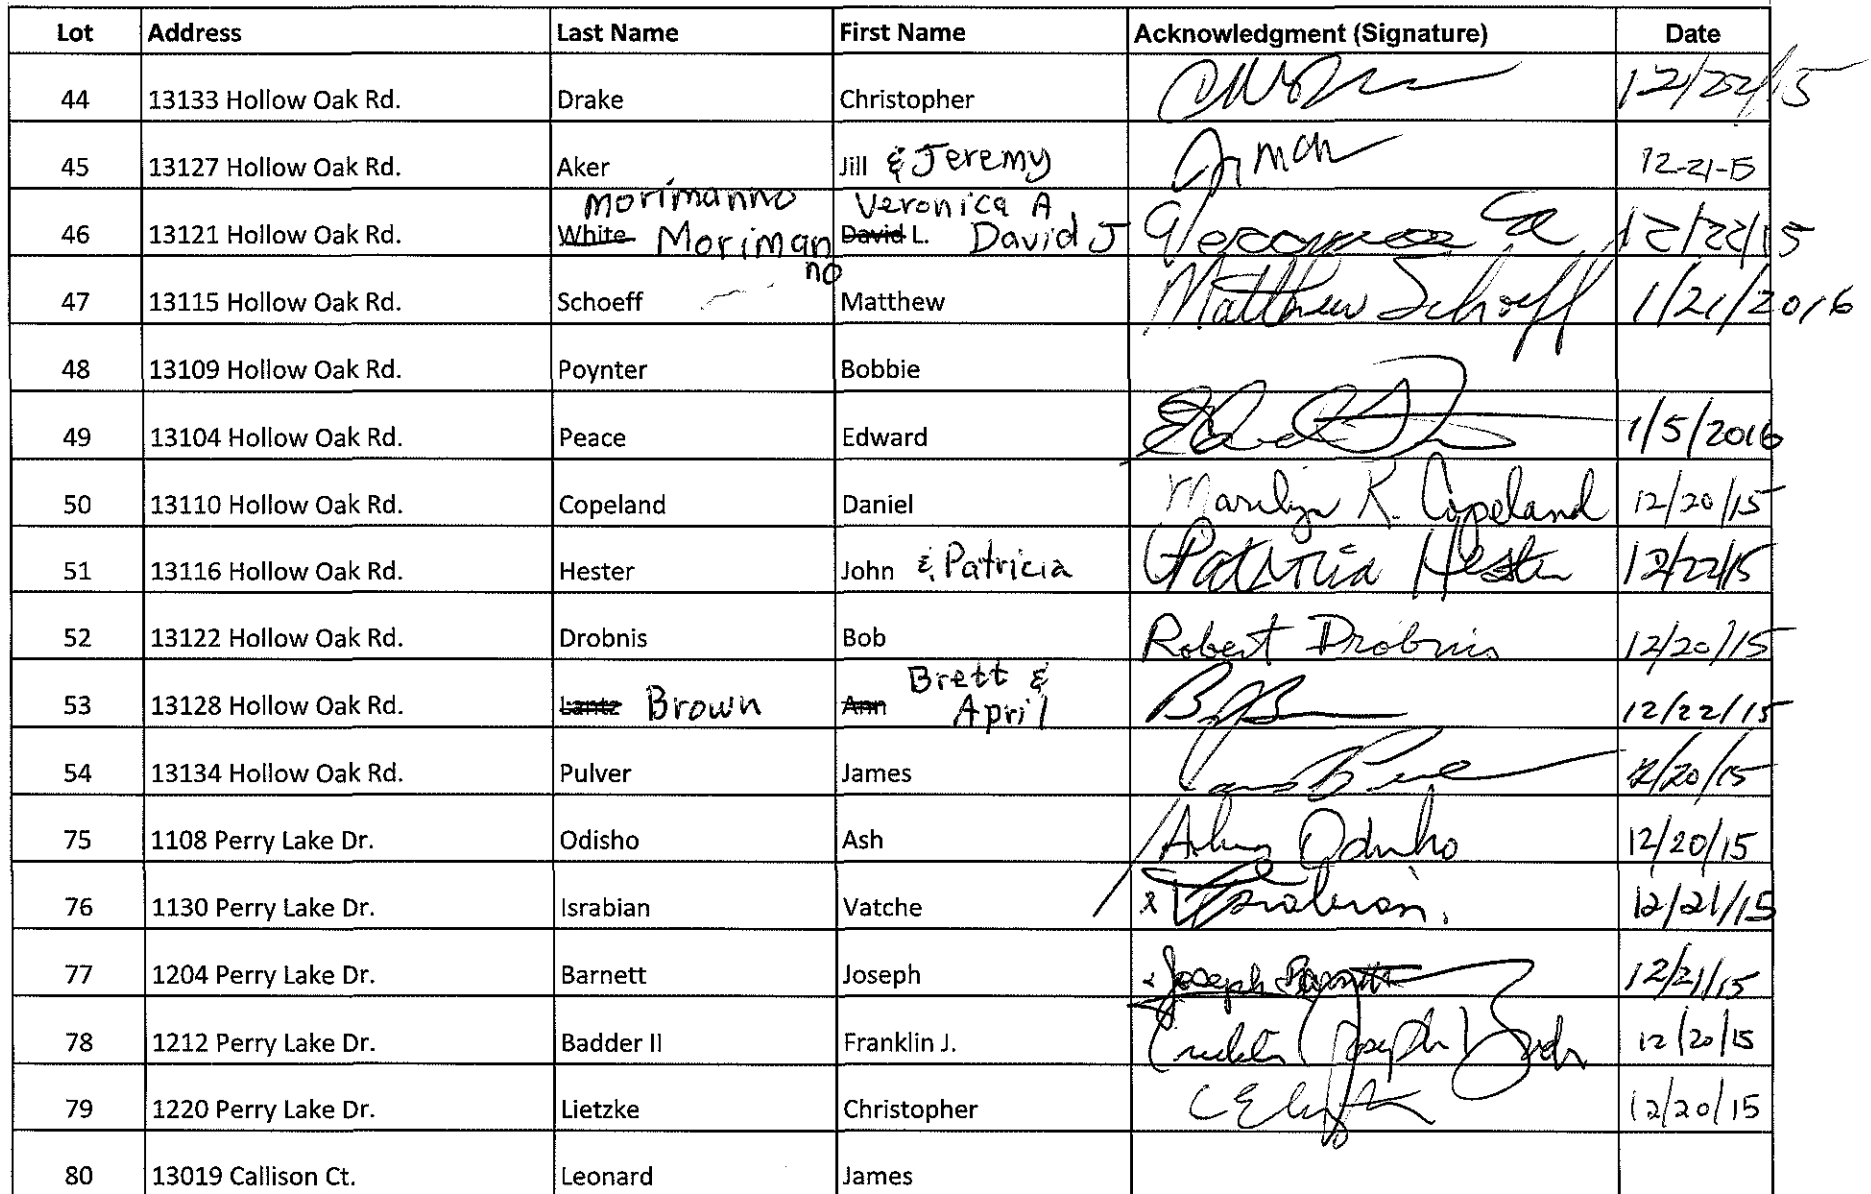 Lot Address Last Name First Name Acknowledgment (Signature) Date
44 13133 Hollow Oak Rd. Drake Christopher 12/22/15
45 13127 Hollow Oak Rd. Aker Jill & Jeremy 12-21-15
Morimanno Veronica A
46 13121 Hollow Oak Rd. White Moriman David L. David J 12/22/15
no
47 13115 Hollow Oak Rd. Schoeff Matthew Matthew Schoeff 1/21/2016
48 13109 Hollow Oak Rd. Poynter Bobbie
49 13104 Hollow Oak Rd. Peace Edward 1/5/2016
50 13110 Hollow Oak Rd. Copeland Daniel Marilyn K. Copeland 12/20/15
51 13116 Hollow Oak Rd. Hester John & Patricia Patricia Hester 12/22/15
52 13122 Hollow Oak Rd. Drobnis Bob Robert Drobnis 12/20/15
Brett &
53 13128 Hollow Oak Rd. Lantz Brown Ann April 12/22/15
54 13134 Hollow Oak Rd. Pulver James 12/20/15
75 1108 Perry Lake Dr. Odisho Ash Odisho 12/20/15
76 1130 Perry Lake Dr. Israbian Vatche 12/21/15
77 1204 Perry Lake Dr. Barnett Joseph Joseph Barnett 12/21/15
78 1212 Perry Lake Dr. Badder II Franklin J. Joseph 12/20/15
79 1220 Perry Lake Dr. Lietzke Christopher 12/20/15
80 13019 Callison Ct. Leonard James